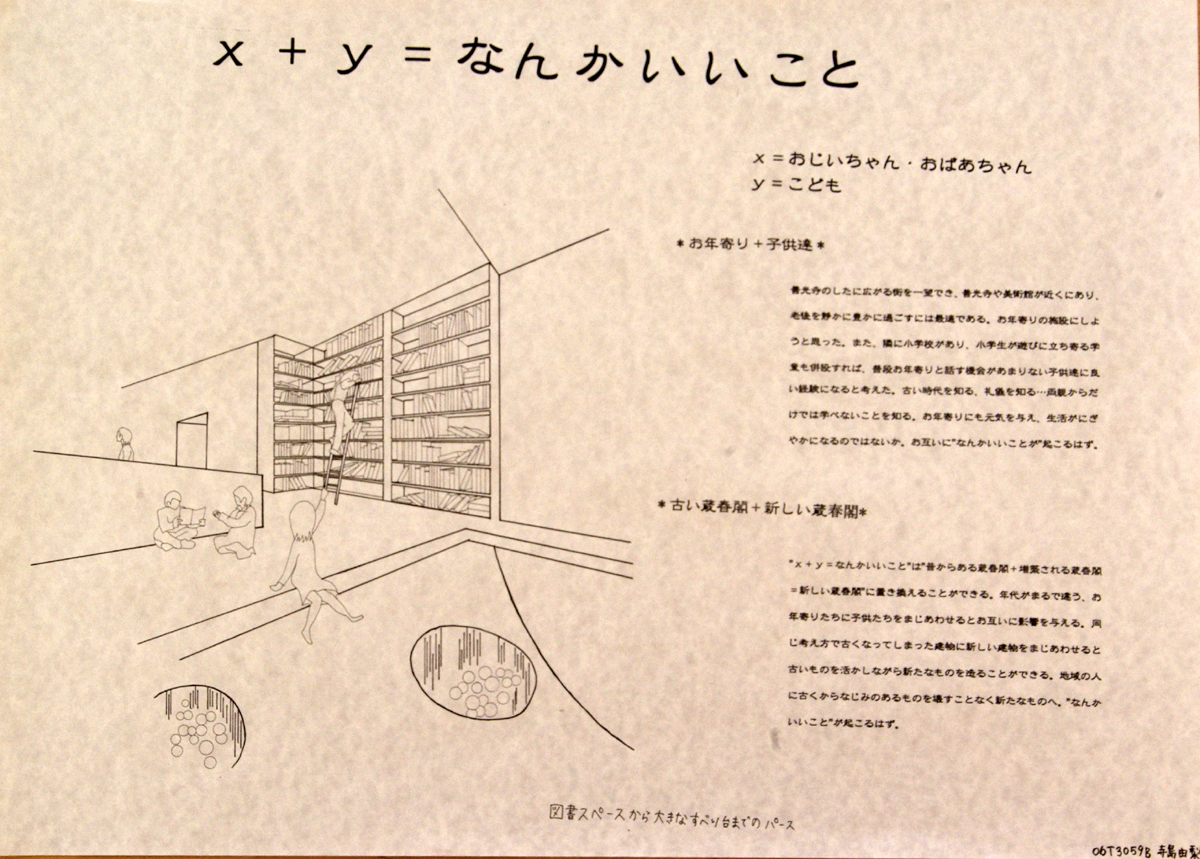 x + y = なんかいいこと
x = おじいちゃん・おばあちゃん
y = こども
*お年寄り+子供達*
善光寺のしたに広がる街を一望でき、善光寺や美術館が近くにあり、
老後を静かに豊かに過ごすには最適である。お年寄りの施設にしよ
うと思った。また、隣に小学校があり、小学生が遊びに立ち寄る学
童も併設すれば、普段お年寄りと話す機会があまりない子供達に良
い経験になると考えた。古い時代を知る、礼儀を知る…両親からだ
けでは学べないことを知る。お年寄りにも元気を与え、生活がにぎ
やかになるのではないか。お互いに"なんかいいことが"起こるはず。
*古い蔵春閣+新しい蔵春閣*
"x+y=なんかいいこと"は"昔からある蔵春閣+増築される蔵春閣
=新しい蔵春閣"に置き換えることができる。年代がまるで違う、お
年寄りたちに子供たちをまじあわせるとお互いに影響を与える。同
じ考え方で古くなってしまった建物に新しい建物をまじあわせると
古いものを活かしながら新たなものを造ることができる。地域の人
に古くからなじみのあるものを壊すことなく新たなものへ。"なんか
いいこと"が起こるはず。
図書スペースから大きなすべり台までのパース
06T3059B 寺島由梨